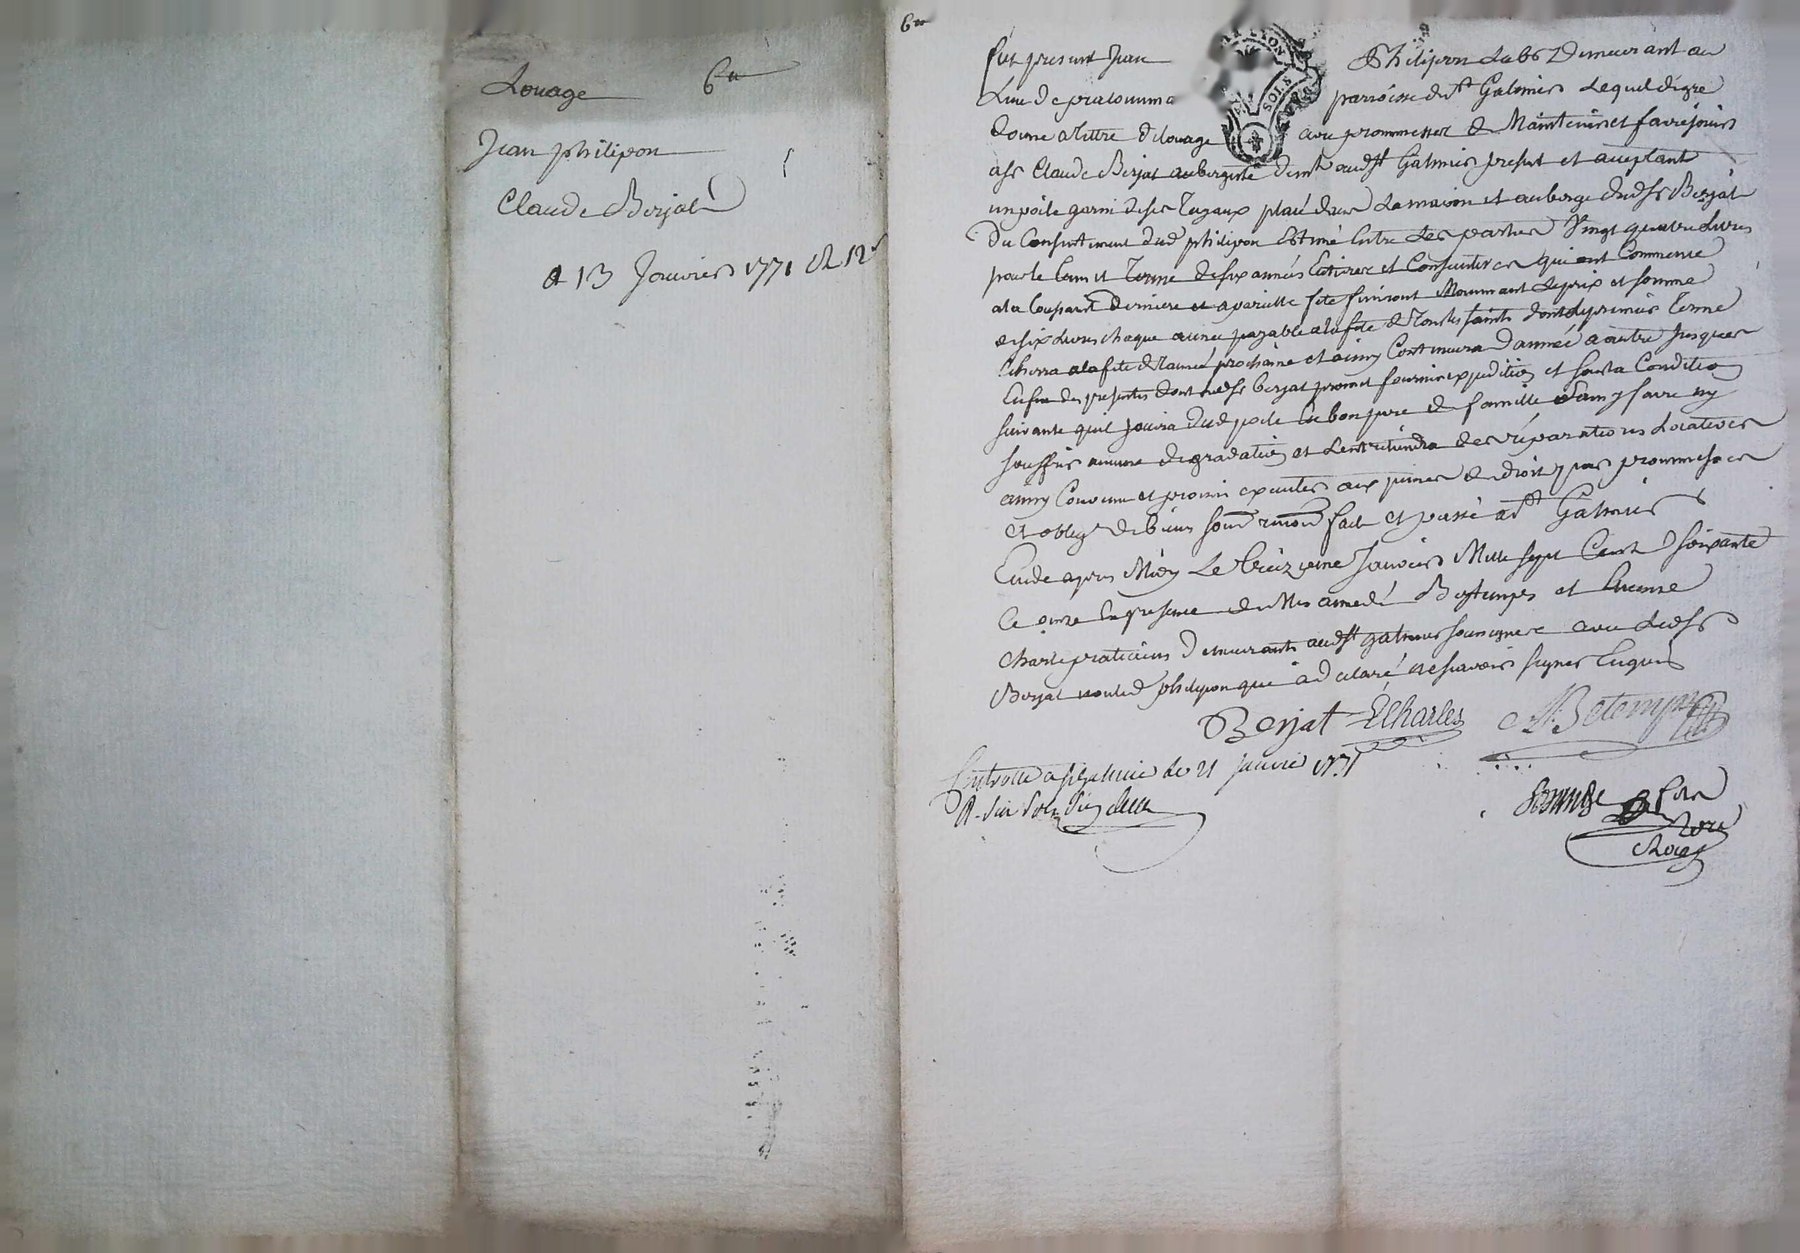 Louage 6#
Jean philipon
Claude Berjat
13 Janvier 1771
6#
fut present Jean Philipon Lab^r Demeurant au
Lieu de parroisse de S^t Galmier Lequel de gre
donne a tittre de louage avec prommesses de Maintenir et faire jouir
a S^r Claude Berjat aubergiste dem^t aud S^t Galmier present et acceptant
un poile garni de ses Tuyaux placé dans La maison et auberge dud S^r Berjat
Du Consentement dud philipon Estimé Entre Les parties Vingt quatre Livres
pour le tems et Terme de six années Entieres et Consecutives qui ont Commencé
a la Toussaint derniere et a pareille fete finiront Moyennant Le prix et somme
de six Livres chaque année payable a la fete de Tous les saints dont le premier terme
Echerra a la fete de l'année prochaine et ainsy Continuera d'année a autre Jusques
Enfin des presentes dont led S^r berjat promet fournir expedition et sous la Condition
suivante quil jouira dud poile En bon pere de famille sans y faire ny
souffrir aucune degradation et L'entretiendra des réparations Locatives
ainsy Convenu et promis executer aux peines de droit par prommesses
et oblig^n de biens soum renon fait et passé a S^t Galmier
Etude apres Midy Le treizieme Janvier Mille sept Cent soixante
et onze En presence de M^es amedé Betemps et Etienne
Charle praticiens Demeurants aud S^t galmier soussignés avec Led S^r
Berjat non led philipon qui a declaré ne scavoir signer Enquis
Berjat ECharles A. Betemps
Controllé a S^t galmier le 21 janvier 1771
R. six sols six den
Not
Roy